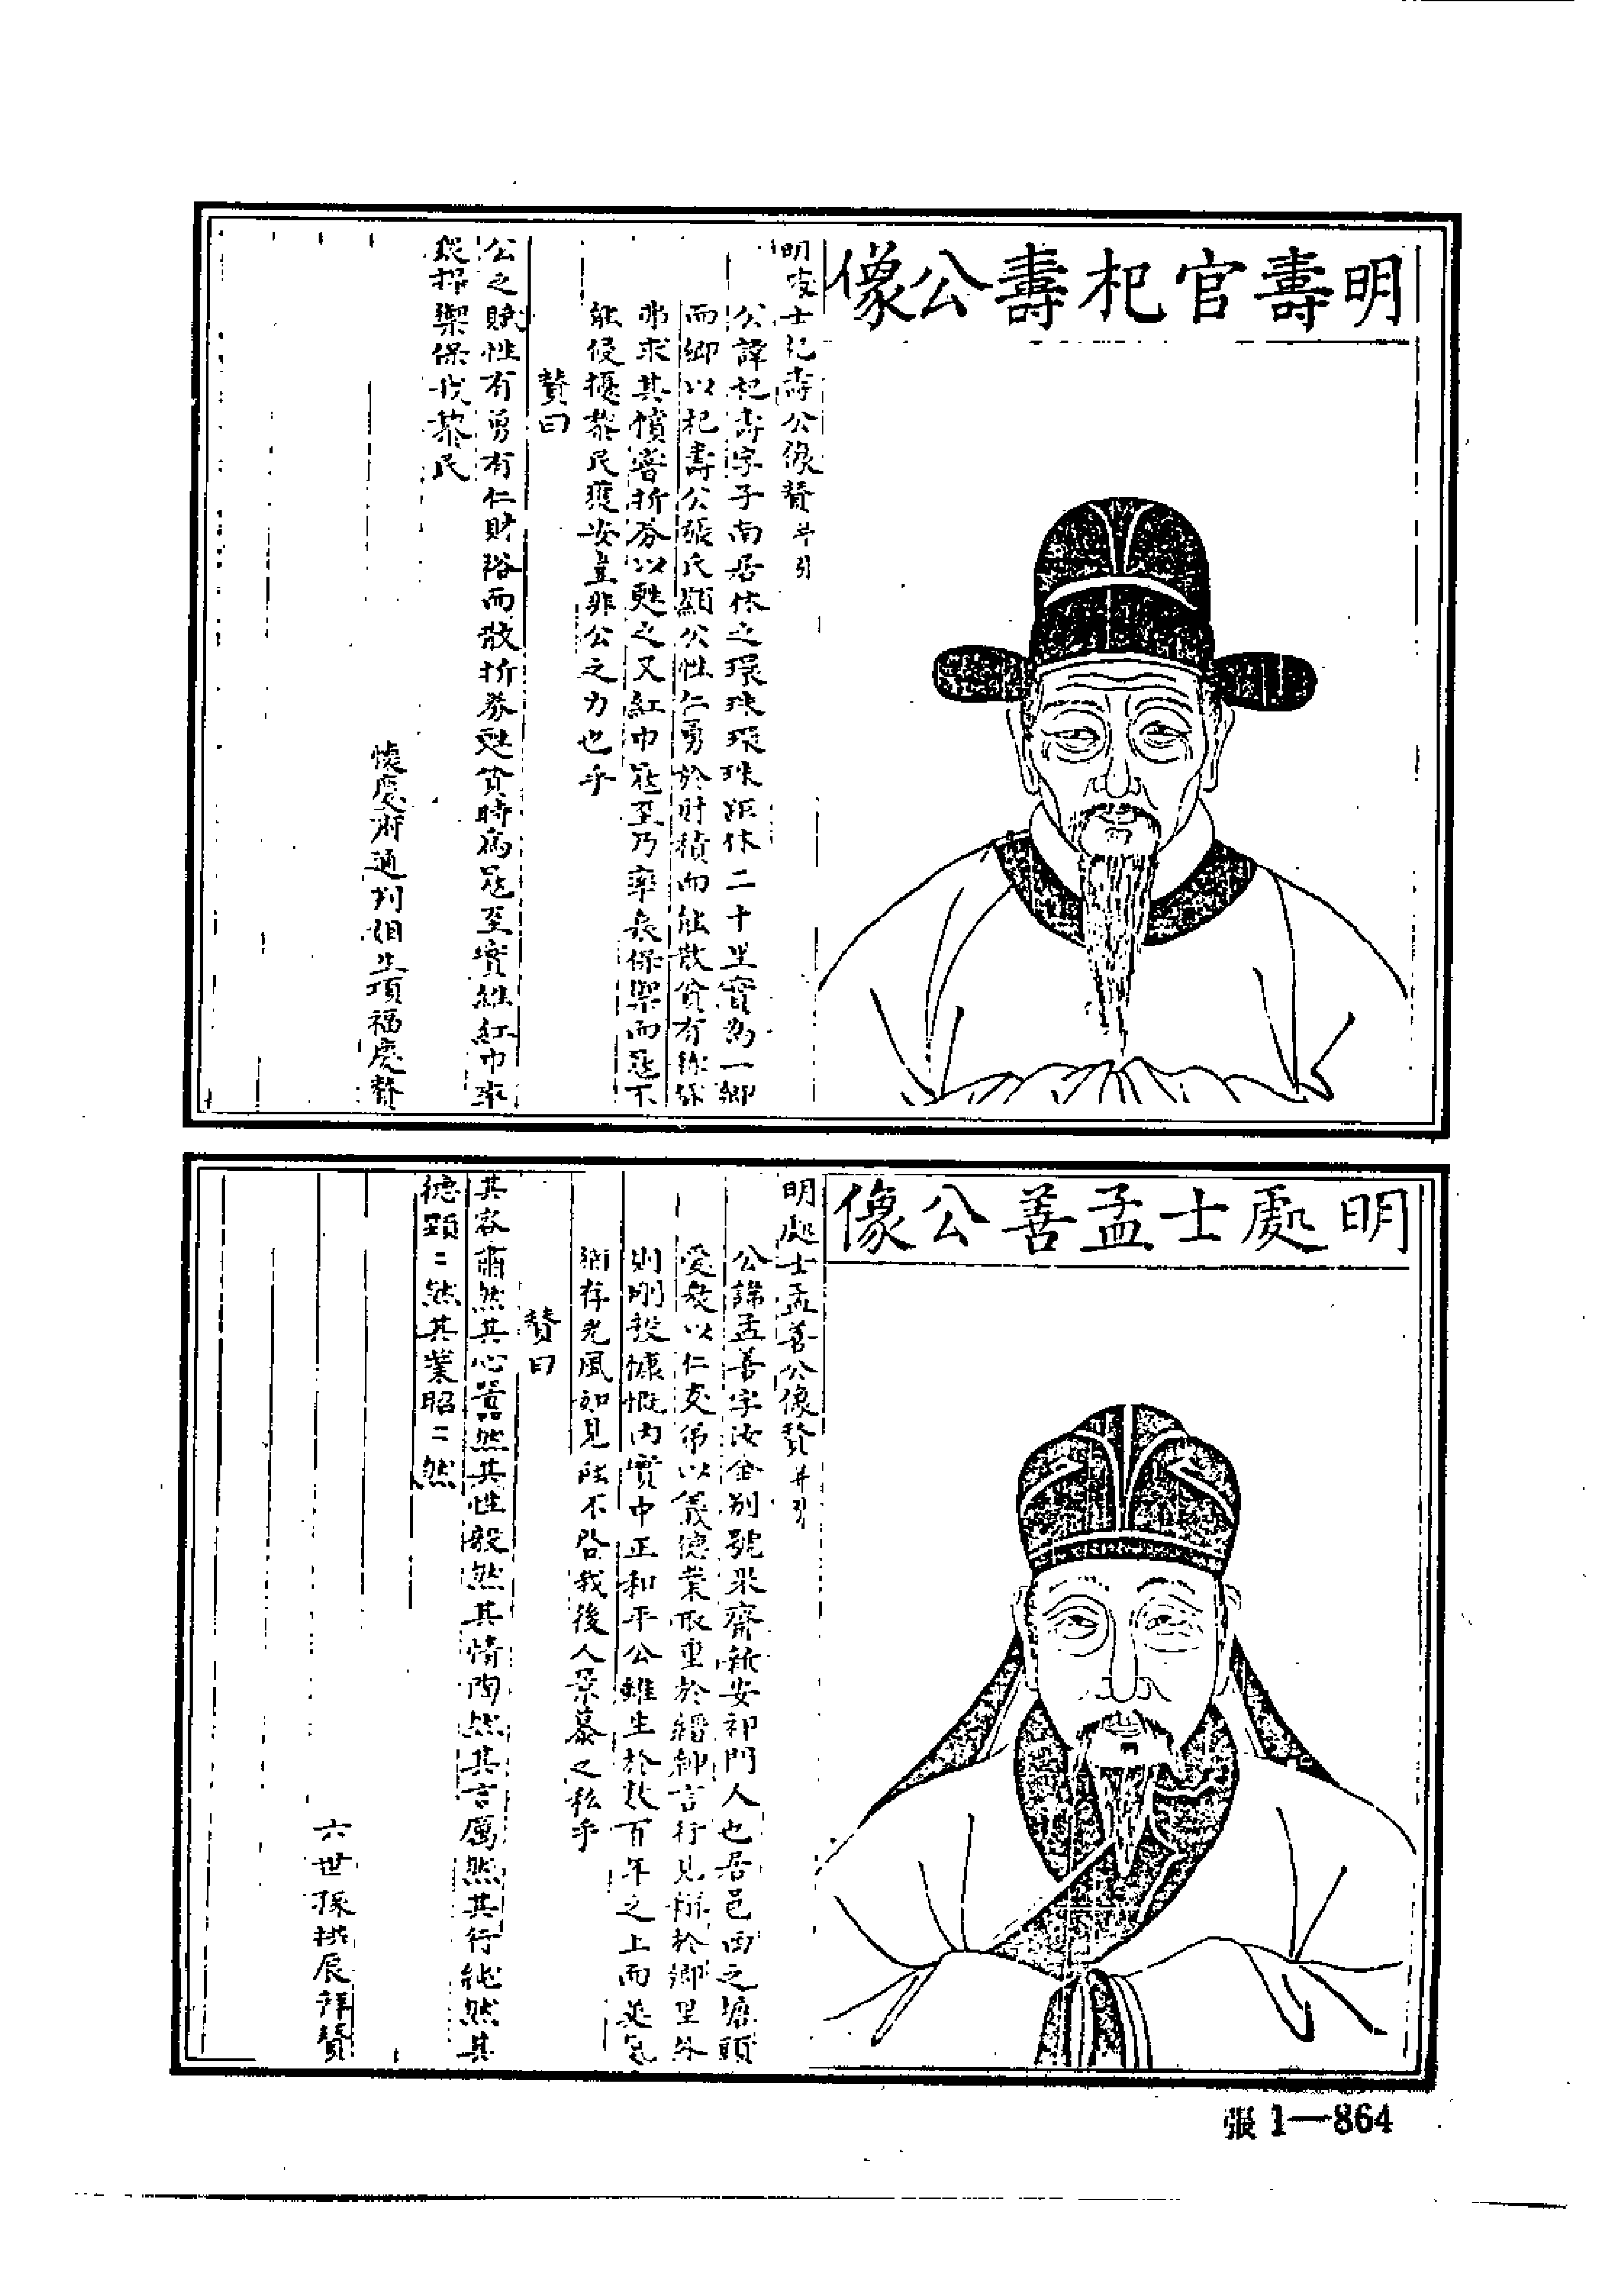 明壽官杞壽公像
明處士杞壽公像贊并引
公諱杞壽字子南居休之環珠環珠距休二十里實為一鄉
而鄉以杞壽公張氏顯公性仁勇於財積而能散貧有稱貸
弗求其償嘗折券以甦之又紅巾寇至乃率衆保禦而寇不
能侵擾黎民獲安豈非公之力也乎
贊曰
公之賦性有勇有仁財裕而散折券甦貧時為寇至實維紅巾率
衆捍禦保我黎民
懷慶府通判姻生項福慶贊
明處士孟善公像
明處士孟善公像贊并引
公諱孟善字汝金別號果齋新安祁門人也居邑西之塘頭
愛衆以仁友弟以義德業取重於縉紳言行見稱於鄉里外
則剛毅慷慨內實中正和平公雖生於数百年之上而英氣
猶存光風如見能不啓我後人景慕之私乎
贊曰
其容肅然其心囂然其性毅然其情陶然其言厲然其行純然其
德顯〻然其業昭〻然
六世孫拱辰拜贊
張1—864